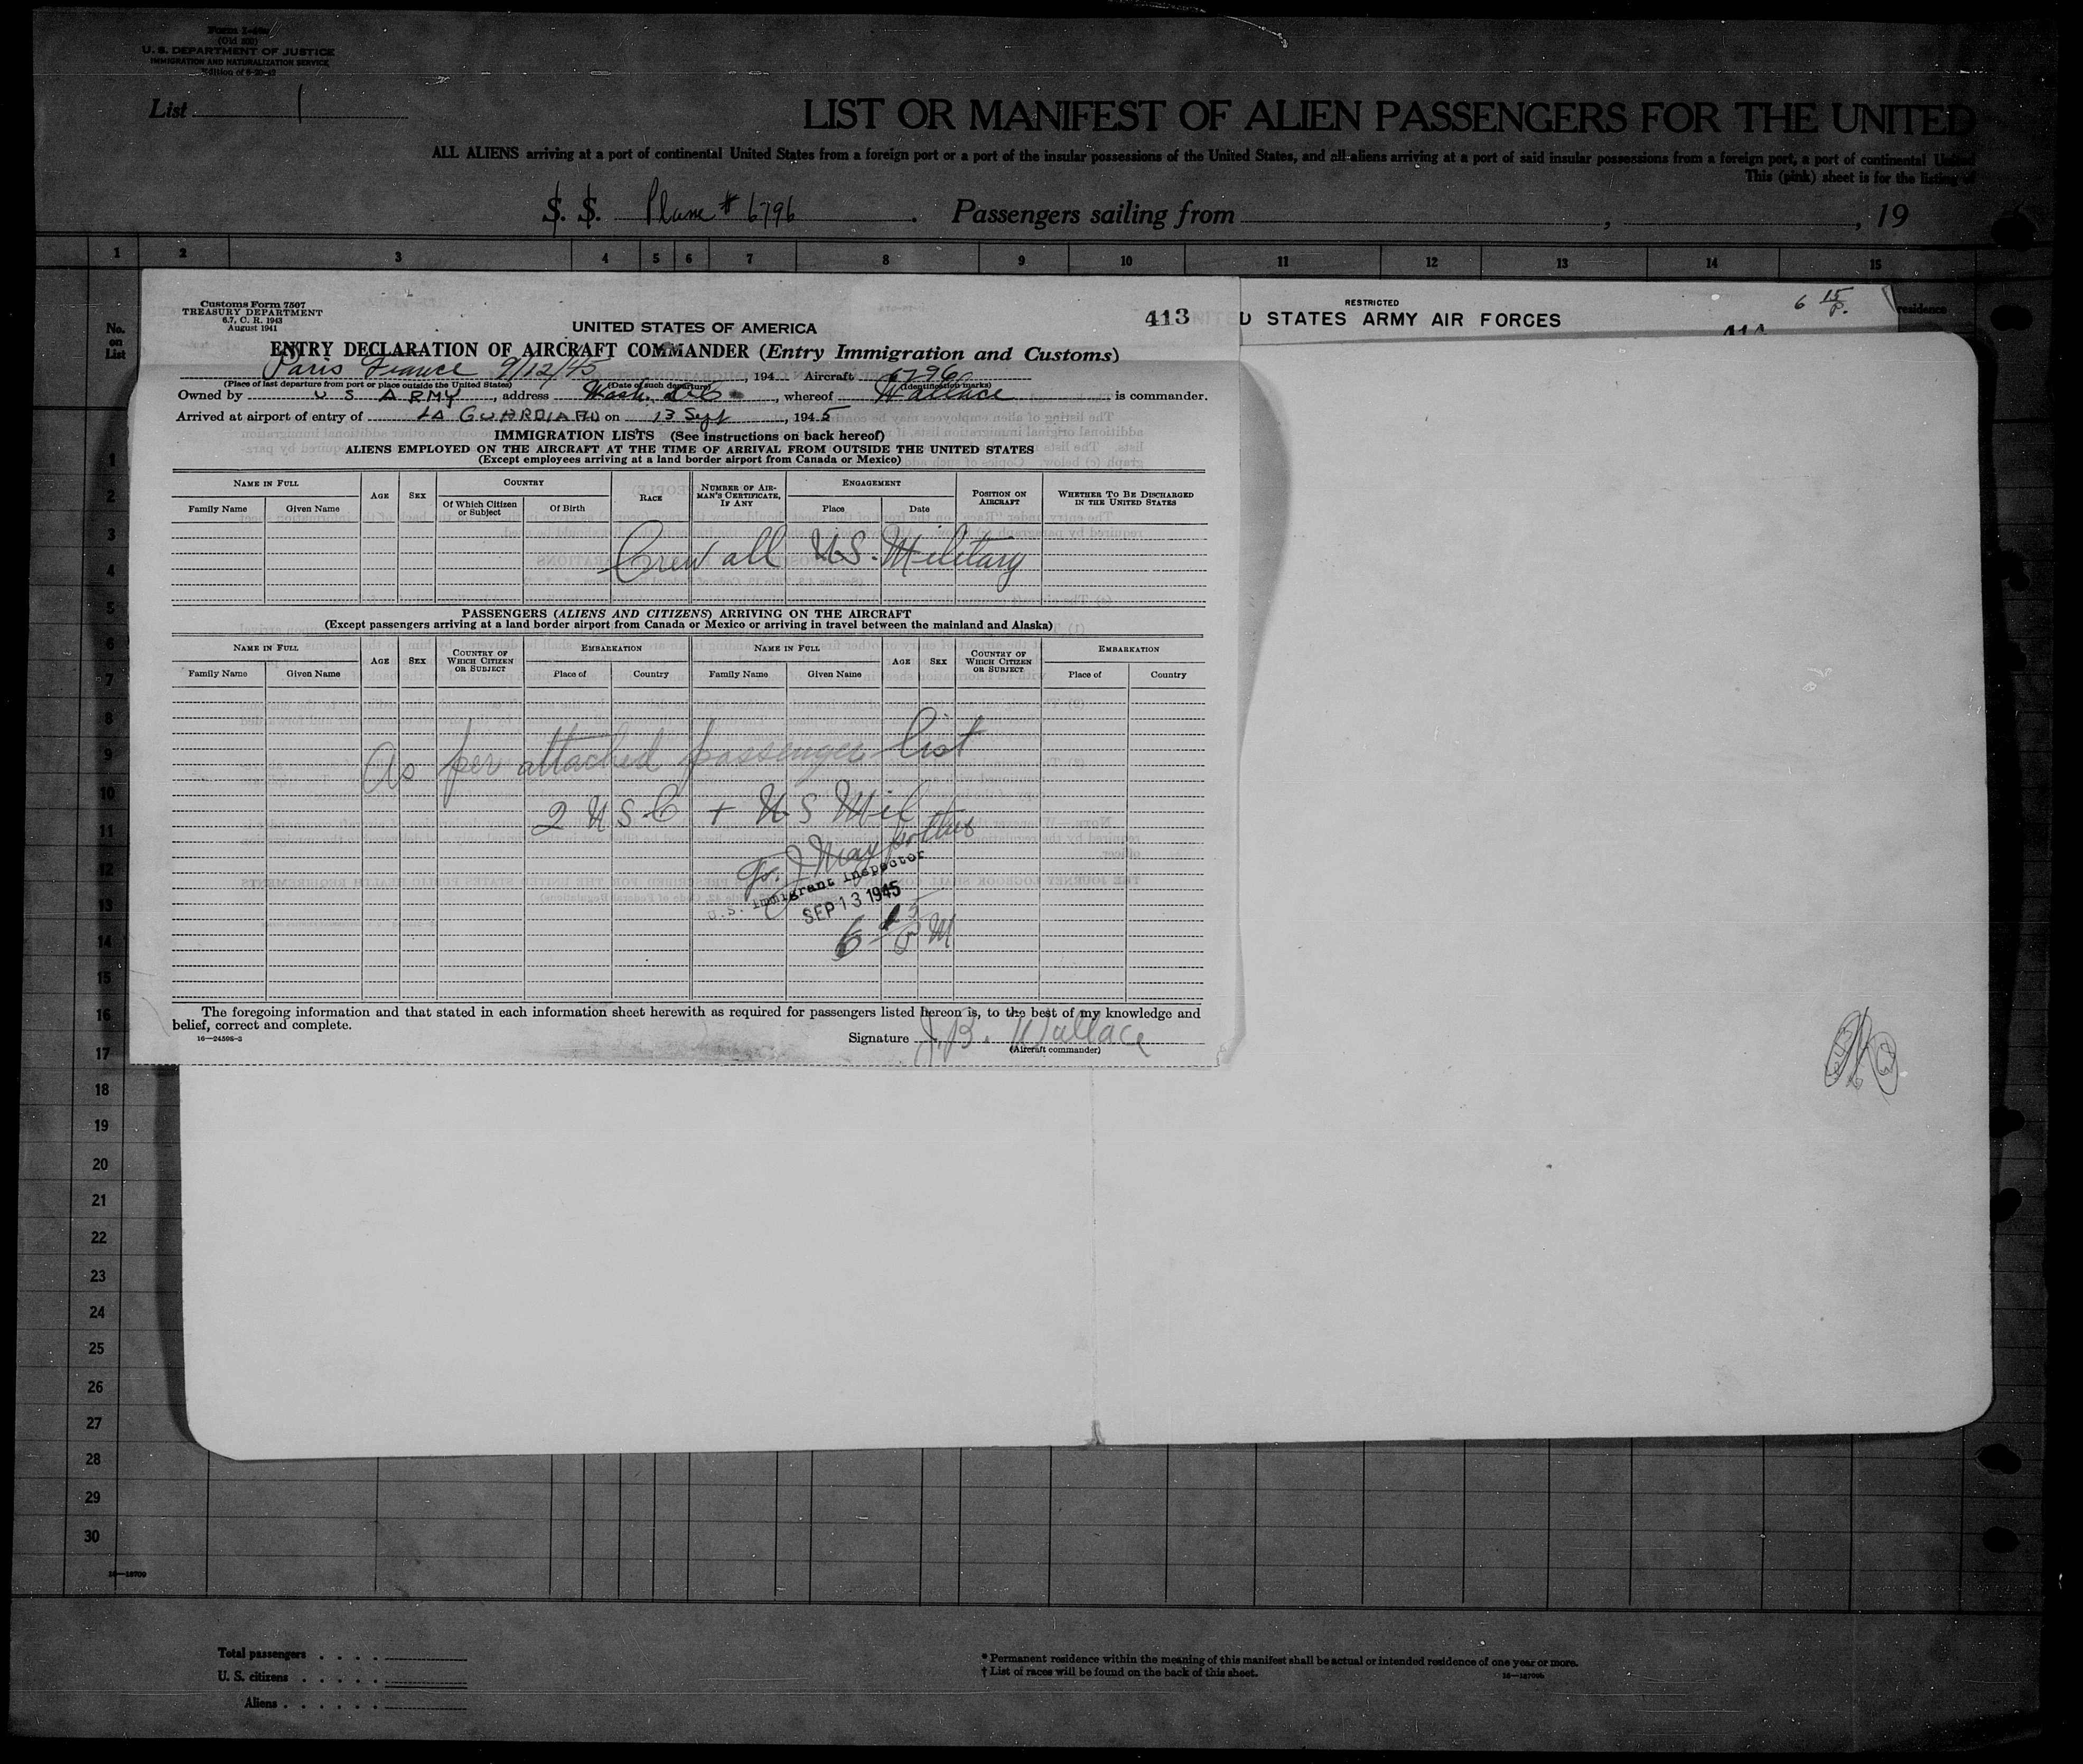 (Old 500)
U. S. DEPARTMENT OF JUSTICE
IMMIGRATION AND NATURALIZATION SERVICE
List 1
LIST OR MANIFEST OF ALIEN PASSENGERS FOR THE UNITED
ALL ALIENS arriving at a port of continental United States from a foreign port or a port of the insular possessions of the United States, and all aliens arriving at a port of said insular possessions from a foreign port, a port of continental United
This (pink) sheet is for the listing of
S. S. Plane # 6796. Passengers sailing from , , 19
1 2 3 4 5 6 7 8 9 10 11 12 13 14 15
No. on List
residence
RESTRICTED
UNITED STATES ARMY AIR FORCES
6 15 P.
414
Customs Form 7507
TREASURY DEPARTMENT
6.7, C. R. 1943
August 1941
UNITED STATES OF AMERICA
413
ENTRY DECLARATION OF AIRCRAFT COMMANDER (Entry Immigration and Customs)
Paris France 9/12/45, 194 Aircraft 6796
(Place of last departure from port or place outside the United States) (Date of such departure) (Identification marks)
Owned by U S ARMY, address Wash., whereof Wallace is commander.
Arrived at airport of entry of LA GUARDIA on 13 Sept, 1945
IMMIGRATION LISTS (See instructions on back hereof)
ALIENS EMPLOYED ON THE AIRCRAFT AT THE TIME OF ARRIVAL FROM OUTSIDE THE UNITED STATES
(Except employees arriving at a land border airport from Canada or Mexico)
NAME IN FULL AGE SEX COUNTRY RACE NUMBER OF AIRMAN'S CERTIFICATE, IF ANY ENGAGEMENT POSITION ON AIRCRAFT WHETHER TO BE DISCHARGED IN THE UNITED STATES
Family Name Given Name Of Which Citizen or Subject Of Birth Place Date
Crew all U.S. Military
PASSENGERS (ALIENS AND CITIZENS) ARRIVING ON THE AIRCRAFT
(Except passengers arriving at a land border airport from Canada or Mexico or arriving in travel between the mainland and Alaska)
NAME IN FULL AGE SEX COUNTRY OF WHICH CITIZEN OR SUBJECT EMBARKATION NAME IN FULL AGE SEX COUNTRY OF WHICH CITIZEN OR SUBJECT EMBARKATION
Family Name Given Name Place of Country Family Name Given Name Place of Country
As per attached passenger list
2 U S C + U S Mil
U.S. Immigrant Inspector
SEP 13 1945
6 15 PM
The foregoing information and that stated in each information sheet herewith as required for passengers listed hereon is, to the best of my knowledge and
belief, correct and complete.
16—24598-3
Signature J. B. Wallace
(Aircraft commander)
1
2
3
4
5
6
7
8
9
10
11
12
13
14
15
16
17
18
19
20
21
22
23
24
25
26
27
28
29
30
Total passengers
U. S. citizens
Aliens
* Permanent residence within the meaning of this manifest shall be actual or intended residence of one year or more.
† List of races will be found on the back of this sheet.